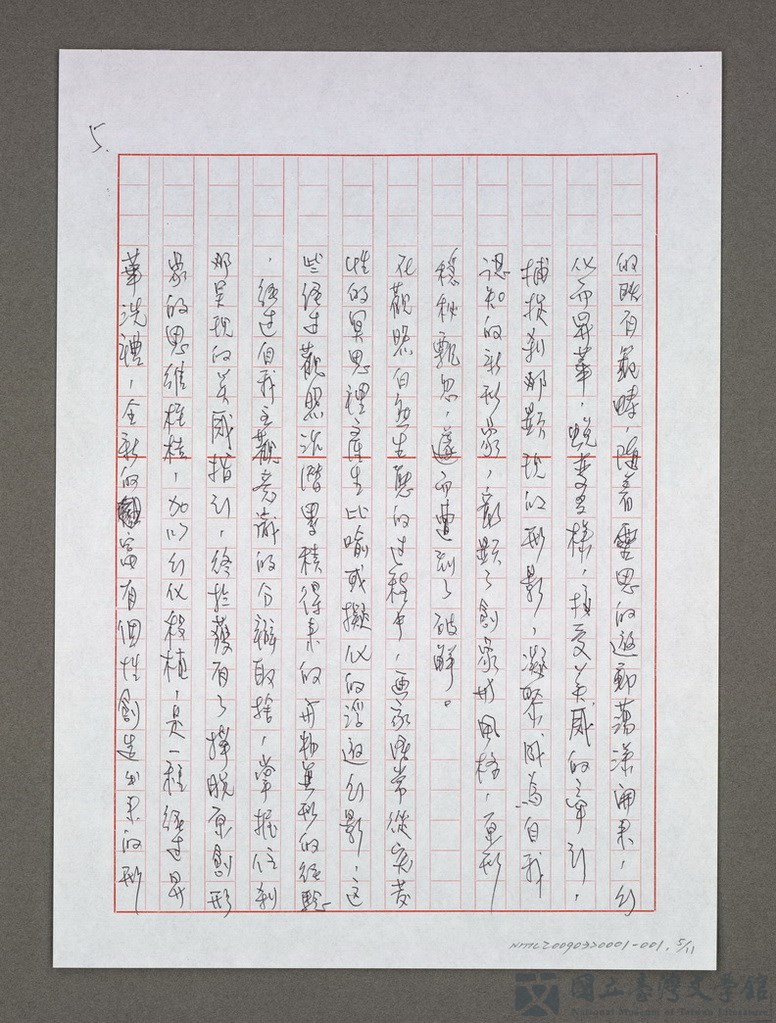 5.
的既有範疇，隨着靈思的遨動蕩漾開來，幻
化而昇華，蛻變多樣，接受美感的牽引，
捕捉刹那顯現的形影，凝聚成為自我
認知的新形象，彰顯了創象形風格，原形
穩秘飄忽，遂而遭到了破解。
在觀照自然生態的過程中，画家經常從突发
性的冥思裡產生比喻或擬似的浮遊幻影，这
些經过觀照沈潛累積得來的有物無形的經驗
，經过自我主觀意識的分辦取捨，掌握住刹
那呈現的美感指引，終於獲有了擇脫原創形
象的思維桎梏，加以幻化移植，是一種經过昇
華洗禮，全新的富有個性創造出來的形
NMTL20090320001-001, 5/11
國立臺灣文學館
National Museum of Taiwan Literature